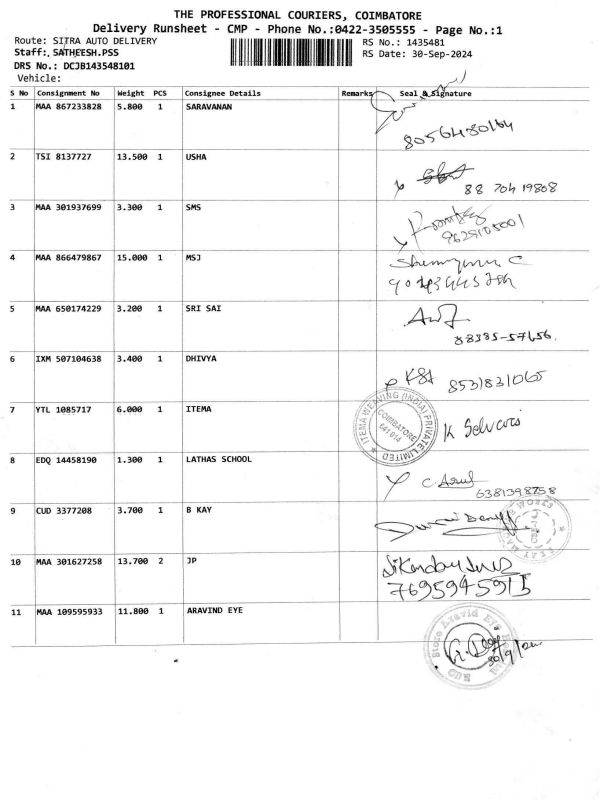 THE PROFESSIONAL COURIERS, COIMBATORE
Delivery Runsheet - CMP - Phone No.:0422-3505555 - Page No.:1
Route: SITRA AUTO DELIVERY RS No.: 1435481
Staff: SATHEESH.PSS RS Date: 30-Sep-2024
DRS No.: DCJB143548101
Vehicle:
S No Consignment No Weight PCS Consignee Details Remarks Seal & Signature
1 MAA 867233828 5.800 1 SARAVANAN
8056480164
2 TSI 8137727 13.500 1 USHA
88 704 19808
3 MAA 301937699 3.300 1 SMS
9629105001
4 MAA 866479867 15.000 1 MSJ
5 MAA 650174229 3.200 1 SRI SAI
88385-57656
6 IXM 507104638 3.400 1 DHIVYA
8531831065
7 YTL 1085717 6.000 1 ITEMA
ITEMA WEAVING (INDIA) PRIVATE LIMITED
COIMBATORE
641 014
8 EDQ 14458190 1.300 1 LATHAS SCHOOL
6381398758
9 CUD 3377208 3.700 1 B KAY
10 MAA 301627258 13.700 2 JP
7695945915
11 MAA 109595933 11.800 1 ARAVIND EYE
30/9/